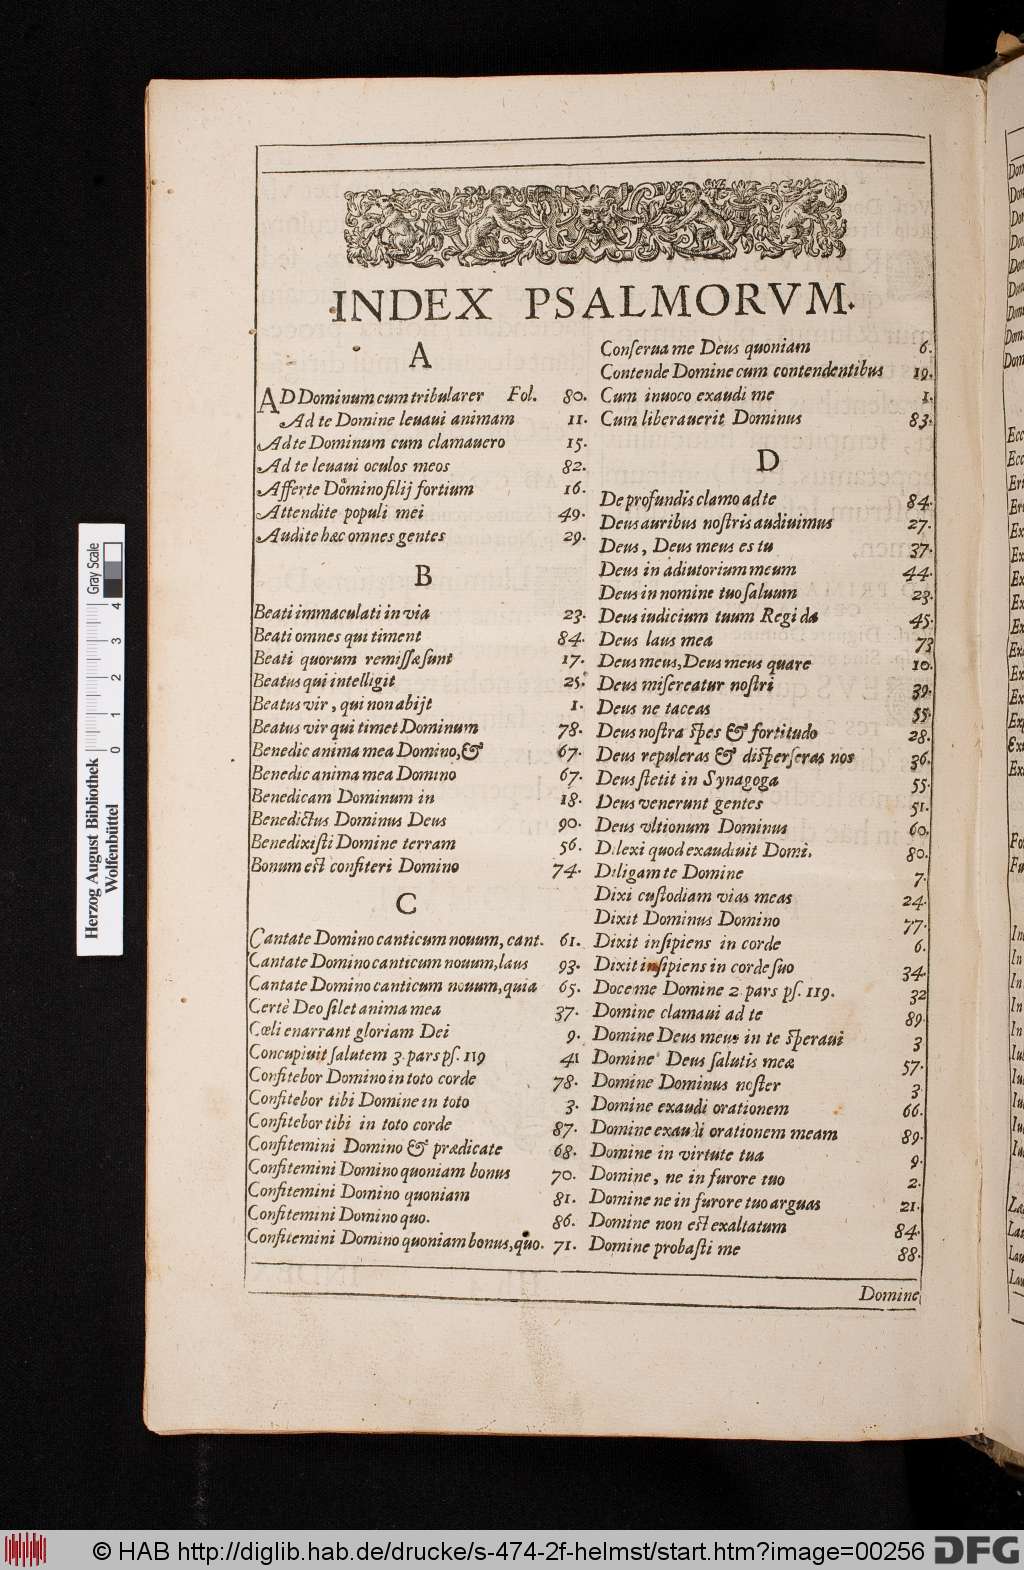 INDEX PSALMORVM.
A
AD Dominum cum tribularer Fol. 80.
Ad te Domine leuaui animam 11.
Ad te Dominum cum clamauero 15.
Ad te leuaui oculos meos 82.
Afferte Domino filij fortium 16.
Attendite populi mei 49.
Audite hæc omnes gentes 29.
B
Beati immaculati in via 23.
Beati omnes qui timent 84.
Beati quorum remiſſæ ſunt 17.
Beatus qui intelligit 25.
Beatus vir, qui non abijt 1.
Beatus vir qui timet Dominum 78.
Benedic anima mea Domino, & 67.
Benedic anima mea Domino 67.
Benedicam Dominum in 18.
Benedictus Dominus Deus 90.
Benedixiſti Domine terram 56.
Bonum eſt confiteri Domino 74.
C
Cantate Domino canticum nouum, cant. 61.
Cantate Domino canticum nouum, laus 93.
Cantate Domino canticum nouum, quia 65.
Certè Deo ſilet anima mea 37.
Cœli enarrant gloriam Dei 9.
Concupiuit ſalutem 3. pars pſ. 119 41
Confitebor Domino in toto corde 78.
Confitebor tibi Domine in toto 3.
Confitebor tibi in toto corde 87.
Confitemini Domino & prædicate 68.
Confitemini Domino quoniam bonus 70.
Confitemini Domino quoniam 81.
Confitemini Domino quo. 86.
Confitemini Domino quoniam bonus, quo. 71.
Conſerua me Deus quoniam 6.
Contende Domine cum contendentibus 19.
Cum inuoco exaudi me 1.
Cum liberauerit Dominus 83.
D
De profundis clamo ad te 84.
Deus auribus noſtris audiuimus 27.
Deus, Deus meus es tu 37.
Deus in adiutorium meum 44.
Deus in nomine tuo ſaluum 23.
Deus iudicium tuum Regi da 45.
Deus laus mea 73
Deus meus, Deus meus quare 10.
Deus miſereatur noſtri 39.
Deus ne taceas 55.
Deus noſtra ſpes & fortitudo 28.
Deus repuleras & diſperſeras nos 36.
Deus ſtetit in Synagoga 55.
Deus venerunt gentes 51.
Deus vltionum Dominus 60.
Dilexi quod exaudiuit Domi. 80.
Diligam te Domine 7.
Dixi cuſtodiam vias meas 24.
Dixit Dominus Domino 77.
Dixit inſipiens in corde 6.
Dixit inſipiens in corde ſuo 34.
Doce me Domine 2. pars pſ. 119. 32
Domine clamaui ad te 89.
Domine Deus meus in te ſperaui 3
Domine Deus ſalutis meæ 57.
Domine Dominus noſter 3.
Domine exaudi orationem 66.
Domine exaudi orationem meam 89.
Domine in virtute tua 9.
Domine, ne in furore tuo 2.
Domine ne in furore tuo arguas 21.
Domine non eſt exaltatum 84.
Domine probaſti me 88.
Domine
Herzog August Bibliothek
Wolfenbüttel
Gray Scale
0 1 2 3 4
© HAB http://diglib.hab.de/drucke/s-474-2f-helmst/start.htm?image=00256
DFG